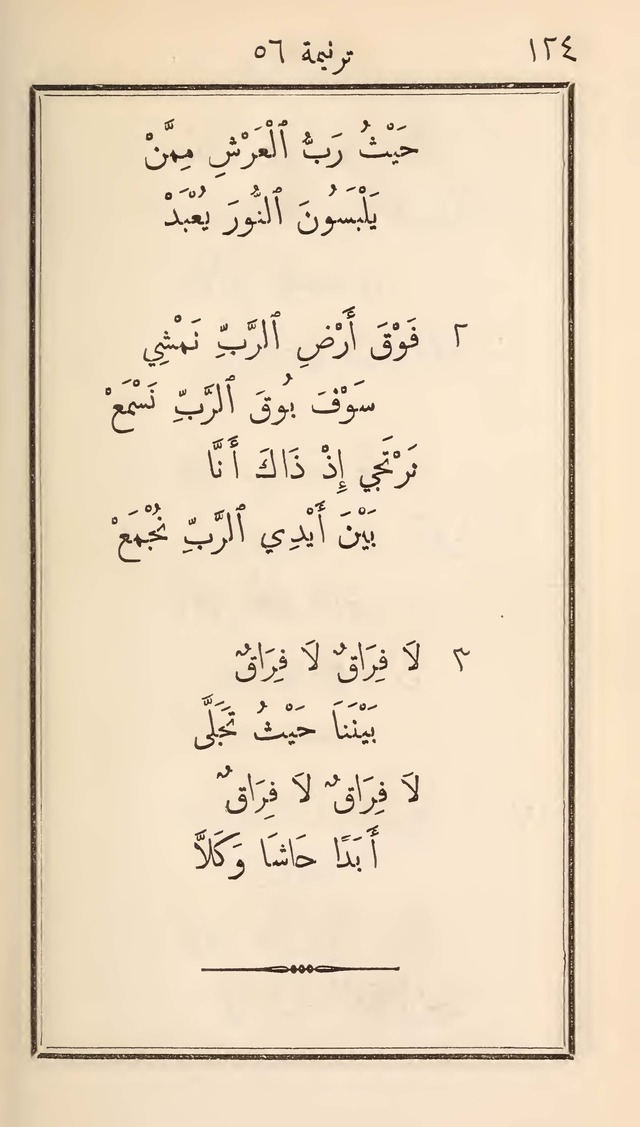 ١٢٤ ترنيمة ٥٦
حَيْثُ رَبُّ ٱلْعَرْشِ مِمَّنْ
يَلْبَسُونَ ٱلنُّورَ يُعْبَدْ
٢ فَوْقَ أَرْضِ ٱلرَّبِّ نَمْشِي
سَوْفَ بُوقَ ٱلرَّبِّ نَسْمَعْ
نَرْتَجِي إِذْ ذَاكَ أَنَّا
بَيْنَ أَيْدِي ٱلرَّبِّ نُجْمَعْ
٣ لاَ فِرَاقٌ لاَ فِرَاقٌ
بَيْنَنَا حَيْثُ تَجَلَّى
لاَ فِرَاقٌ لاَ فِرَاقٌ
أَبَدًا حَاشَا وَكَلاَّ